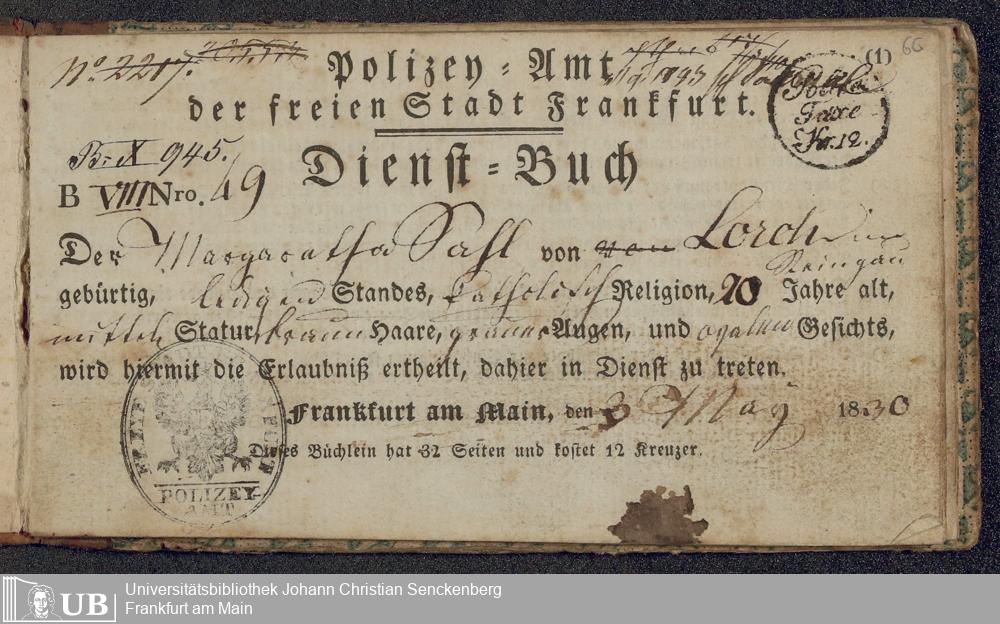 No. 2217.
Polizey-Amt
(1)
66
der freien Stadt Frankfurt.
Taxe
Kr. 12.
B. X 945.
Dienst-Buch
B VIII Nro. 49
Der Margaretha Sahl von Lorch im
Reingau
gebürtig, ledigen Standes, katholisch Religion, 20 Jahre alt,
mittel Statur, braun Haare, grauer Augen, und ovalen Gesichts,
wird hiermit die Erlaubniß ertheilt, dahier in Dienst zu treten.
Frankfurt am Main, den 3 May 1830
Dieses Büchlein hat 32 Seiten und kostet 12 Kreuzer.
POLIZEY-
AMT
UB
Universitätsbibliothek Johann Christian Senckenberg
Frankfurt am Main